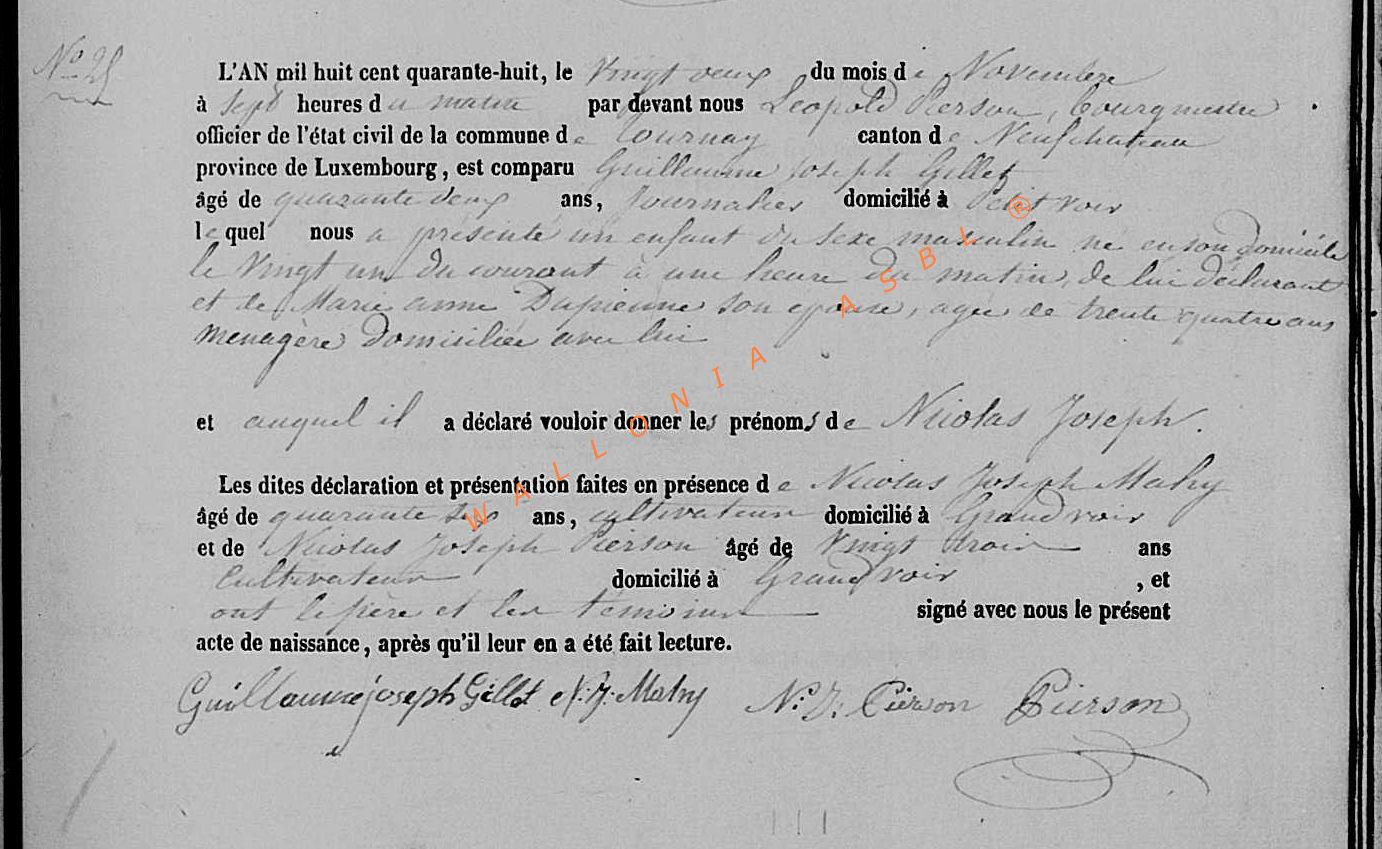 N° 25
L'AN mil huit cent quarante-huit, le Vingt deux du mois de Novembre
à sept heures du matin par devant nous Léopold Pierson, bourgmestre
officier de l'état civil de la commune de tournay canton de Neufchateau
province de Luxembourg, est comparu Guillaume joseph Gillet
âgé de quarante deux ans, journalier domicilié à Petit voir
lequel nous a présenté un enfant du sexe masculin né en son domicile
le Vingt un du courant à une heure du matin, de lui déclarant
et de Marie anne Dapienne son epouse, agée de trente quatre ans
menagère domiciliée avec lui
et auquel il a déclaré vouloir donner les prénoms de Nicolas Joseph.
Les dites déclaration et présentation faites en présence de Nicolas Joseph Mahy
âgé de quarante ans, cultivateur domicilié à Grandvoir
et de Nicolas Joseph Pierson âgé de Vingt trois ans
Cultivateur domicilié à Grandvoir, et
ont le père et les témoins signé avec nous le présent
acte de naissance, après qu'il leur en a été fait lecture.
Guillaume joseph Gillet N. J. Mahy N. J. Pierson Pierson
WALLONIA ASBL ®